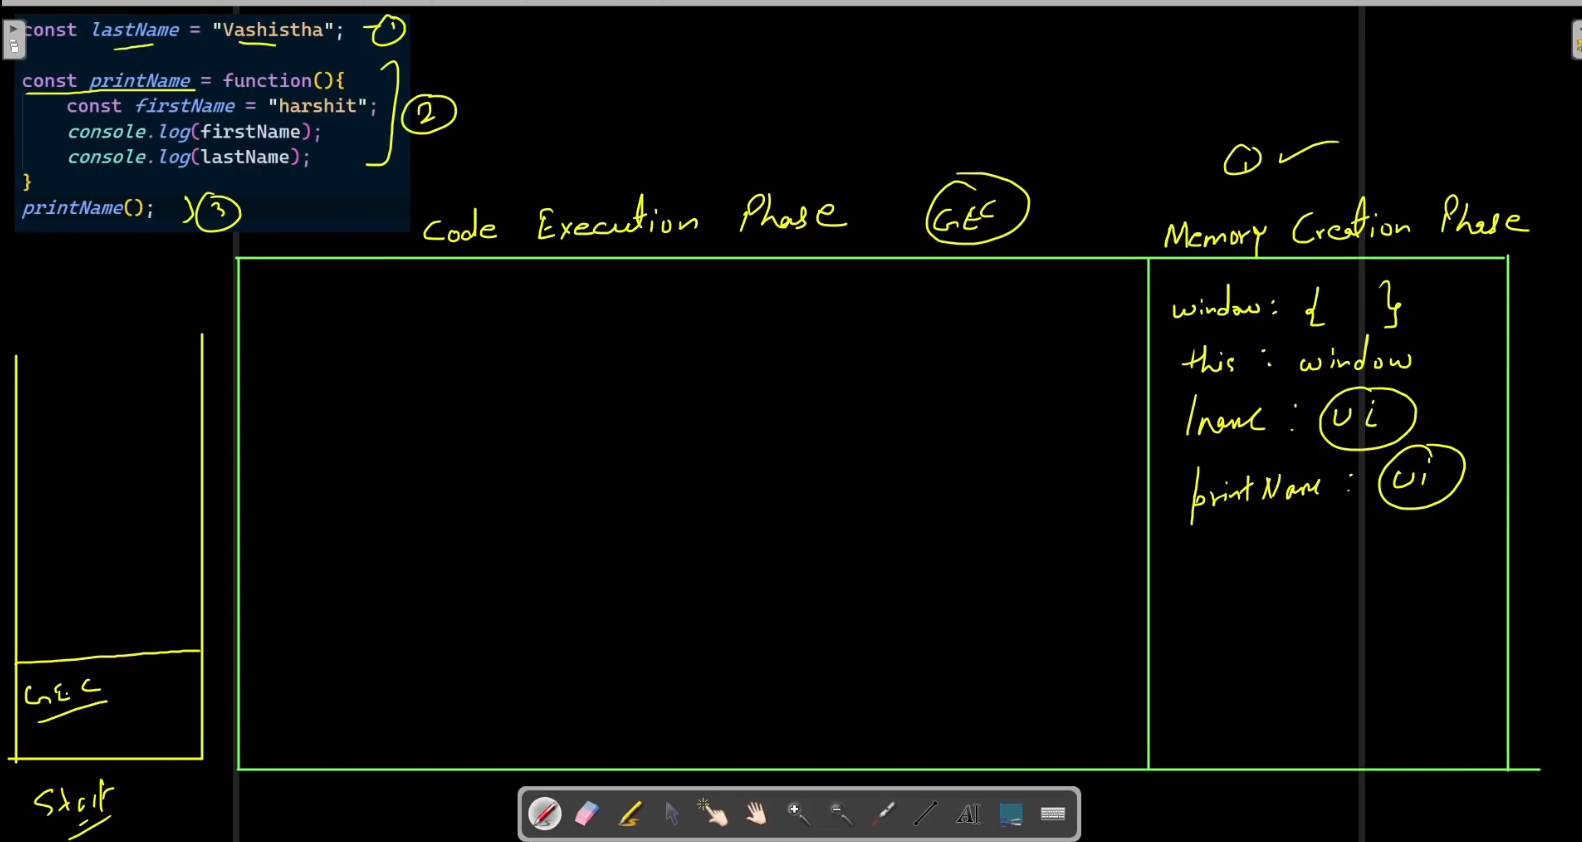 const lastName = "Vashistha"; 1
const printName = function(){
const firstName = "harshit";
console.log(firstName);
console.log(lastName);
}
2
printName(); 3
1
Code Execution Phase GEC Memory Creation Phase
window: { }
this : window
lname : ui
printName : ui
GEC
Stack
AI